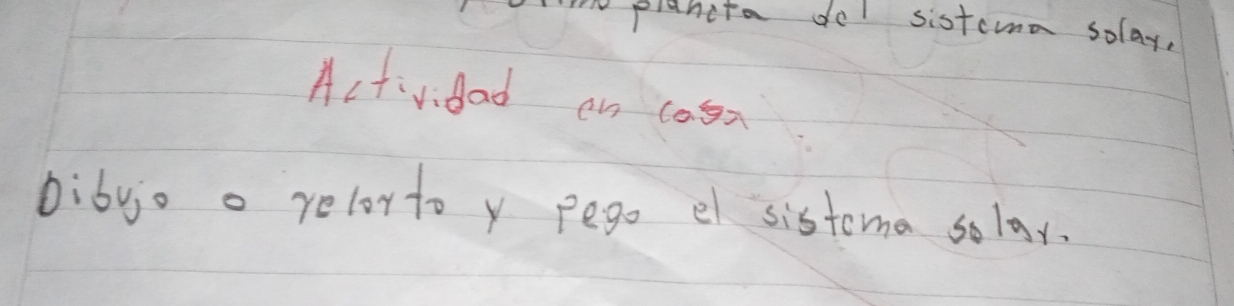 planeta del sistema solar.
Actividad en casa
Dibujo o recorto y pego el sistema solar.